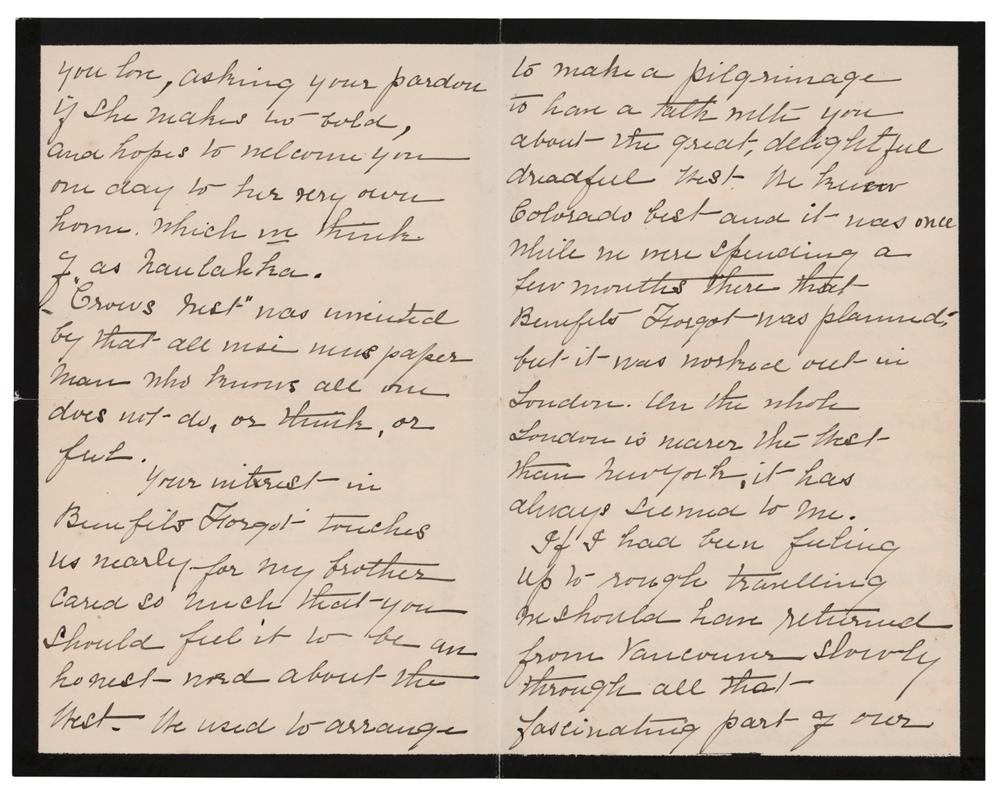 you love, asking your pardon
if she makes to bold,
and hopes to welcome you
one day to her very own
home. which we think
of as Naulahka.
"Crows Nest" was invented
by that all wise newspaper
man who knows all one
does not do, or think, or
feel.
Your interest in
Benefits Forgot touches
us nearly for my brother
cared so much that you
should feel it to be an
honest word about the
West. We used to arrange
to make a pilgrimage
to have a talk with you
about the great, delightful
dreadful West. We knew
Colorado best and it was once
while we were spending a
few months there that
Benefits Forgot was planned;
but it was worked out in
London. On the whole
London is nearer the West
than New York, it has
always seemed to me.
If I had been feeling
up to rough travelling
we should have returned
from Vancouver slowly
through all that
fascinating part of our